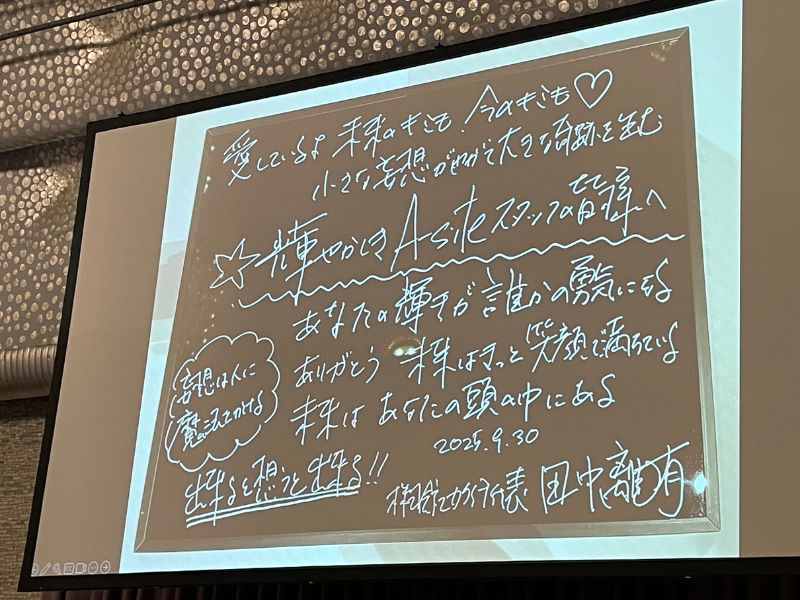 愛しているよ 未来のキミも 今のキミも♡
小さな妄想がやがて大きな奇跡を生む
☆輝やかしき Asite スタッフの皆様へ
あなたの輝きが誰かの勇気になる
ありがとう 未来はきっと笑顔で満ちている
未来は あなたの頭の中にある
2025.9.30
妄想は人に
魔法をかける
出来ると想うと出来る!!
代表 田中離有